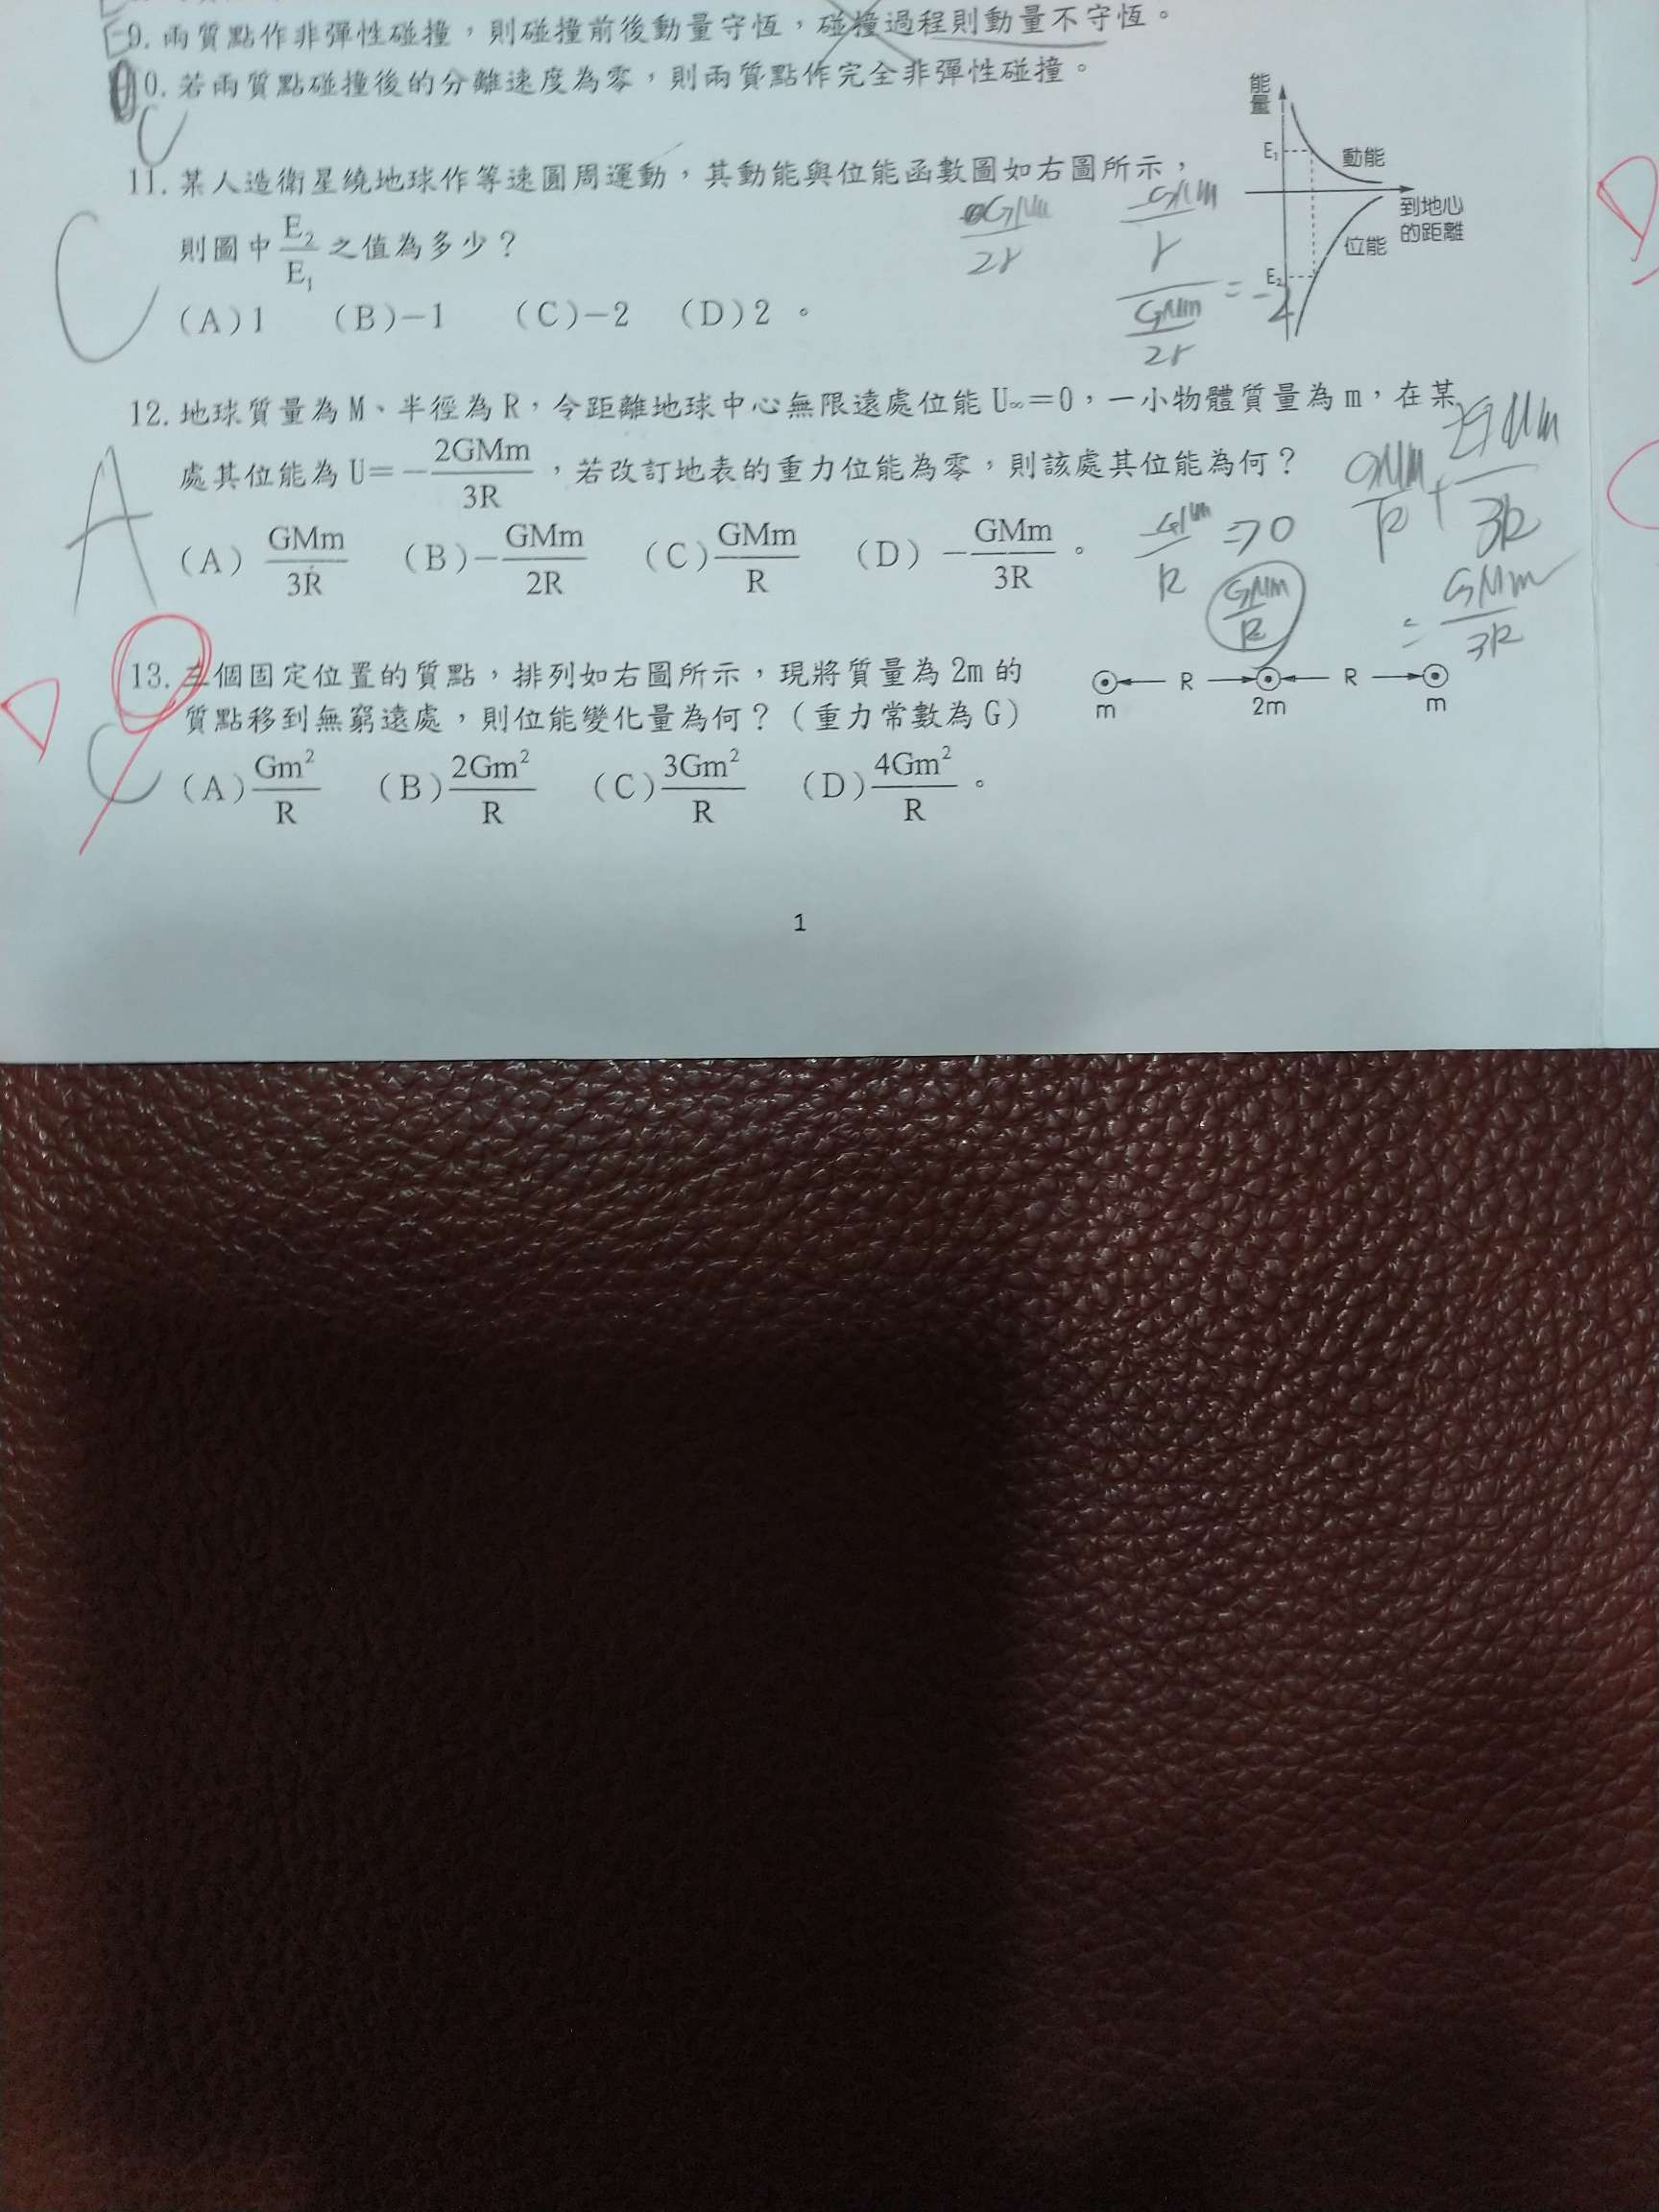 9. 兩質點作非彈性碰撞，則碰撞前後動量守恆，碰撞過程則動量不守恆。
10. 若兩質點碰撞後的分離速度為零，則兩質點作完全非彈性碰撞。
C
11. 某人造衛星繞地球作等速圓周運動，其動能與位能函數圖如右圖所示，
則圖中 E₂/E₁ 之值為多少？
(A)1 (B)−1 (C)−2 (D)2 。
C
GMm/2r
-GMm/r / GMm/2r = -2
能量
E₁
動能
到地心的距離
位能
E₂
D
12. 地球質量為 M、半徑為 R，令距離地球中心無限遠處位能 U∞＝0，一小物體質量為 m，在某
處其位能為 U＝− 2GMm/3R ，若改訂地表的重力位能為零，則該處其位能為何？
(A) GMm/3R (B)− GMm/2R (C) GMm/R (D) − GMm/3R 。
A
-GMm/R ⇒ 0
GMm/R
GMm/R + -2GMm/3R
= GMm/3R
13. 三個固定位置的質點，排列如右圖所示，現將質量為 2m 的
質點移到無窮遠處，則位能變化量為何？（重力常數為 G）
(A) Gm²/R (B) 2Gm²/R (C) 3Gm²/R (D) 4Gm²/R 。
D
C
R R
m 2m m
1